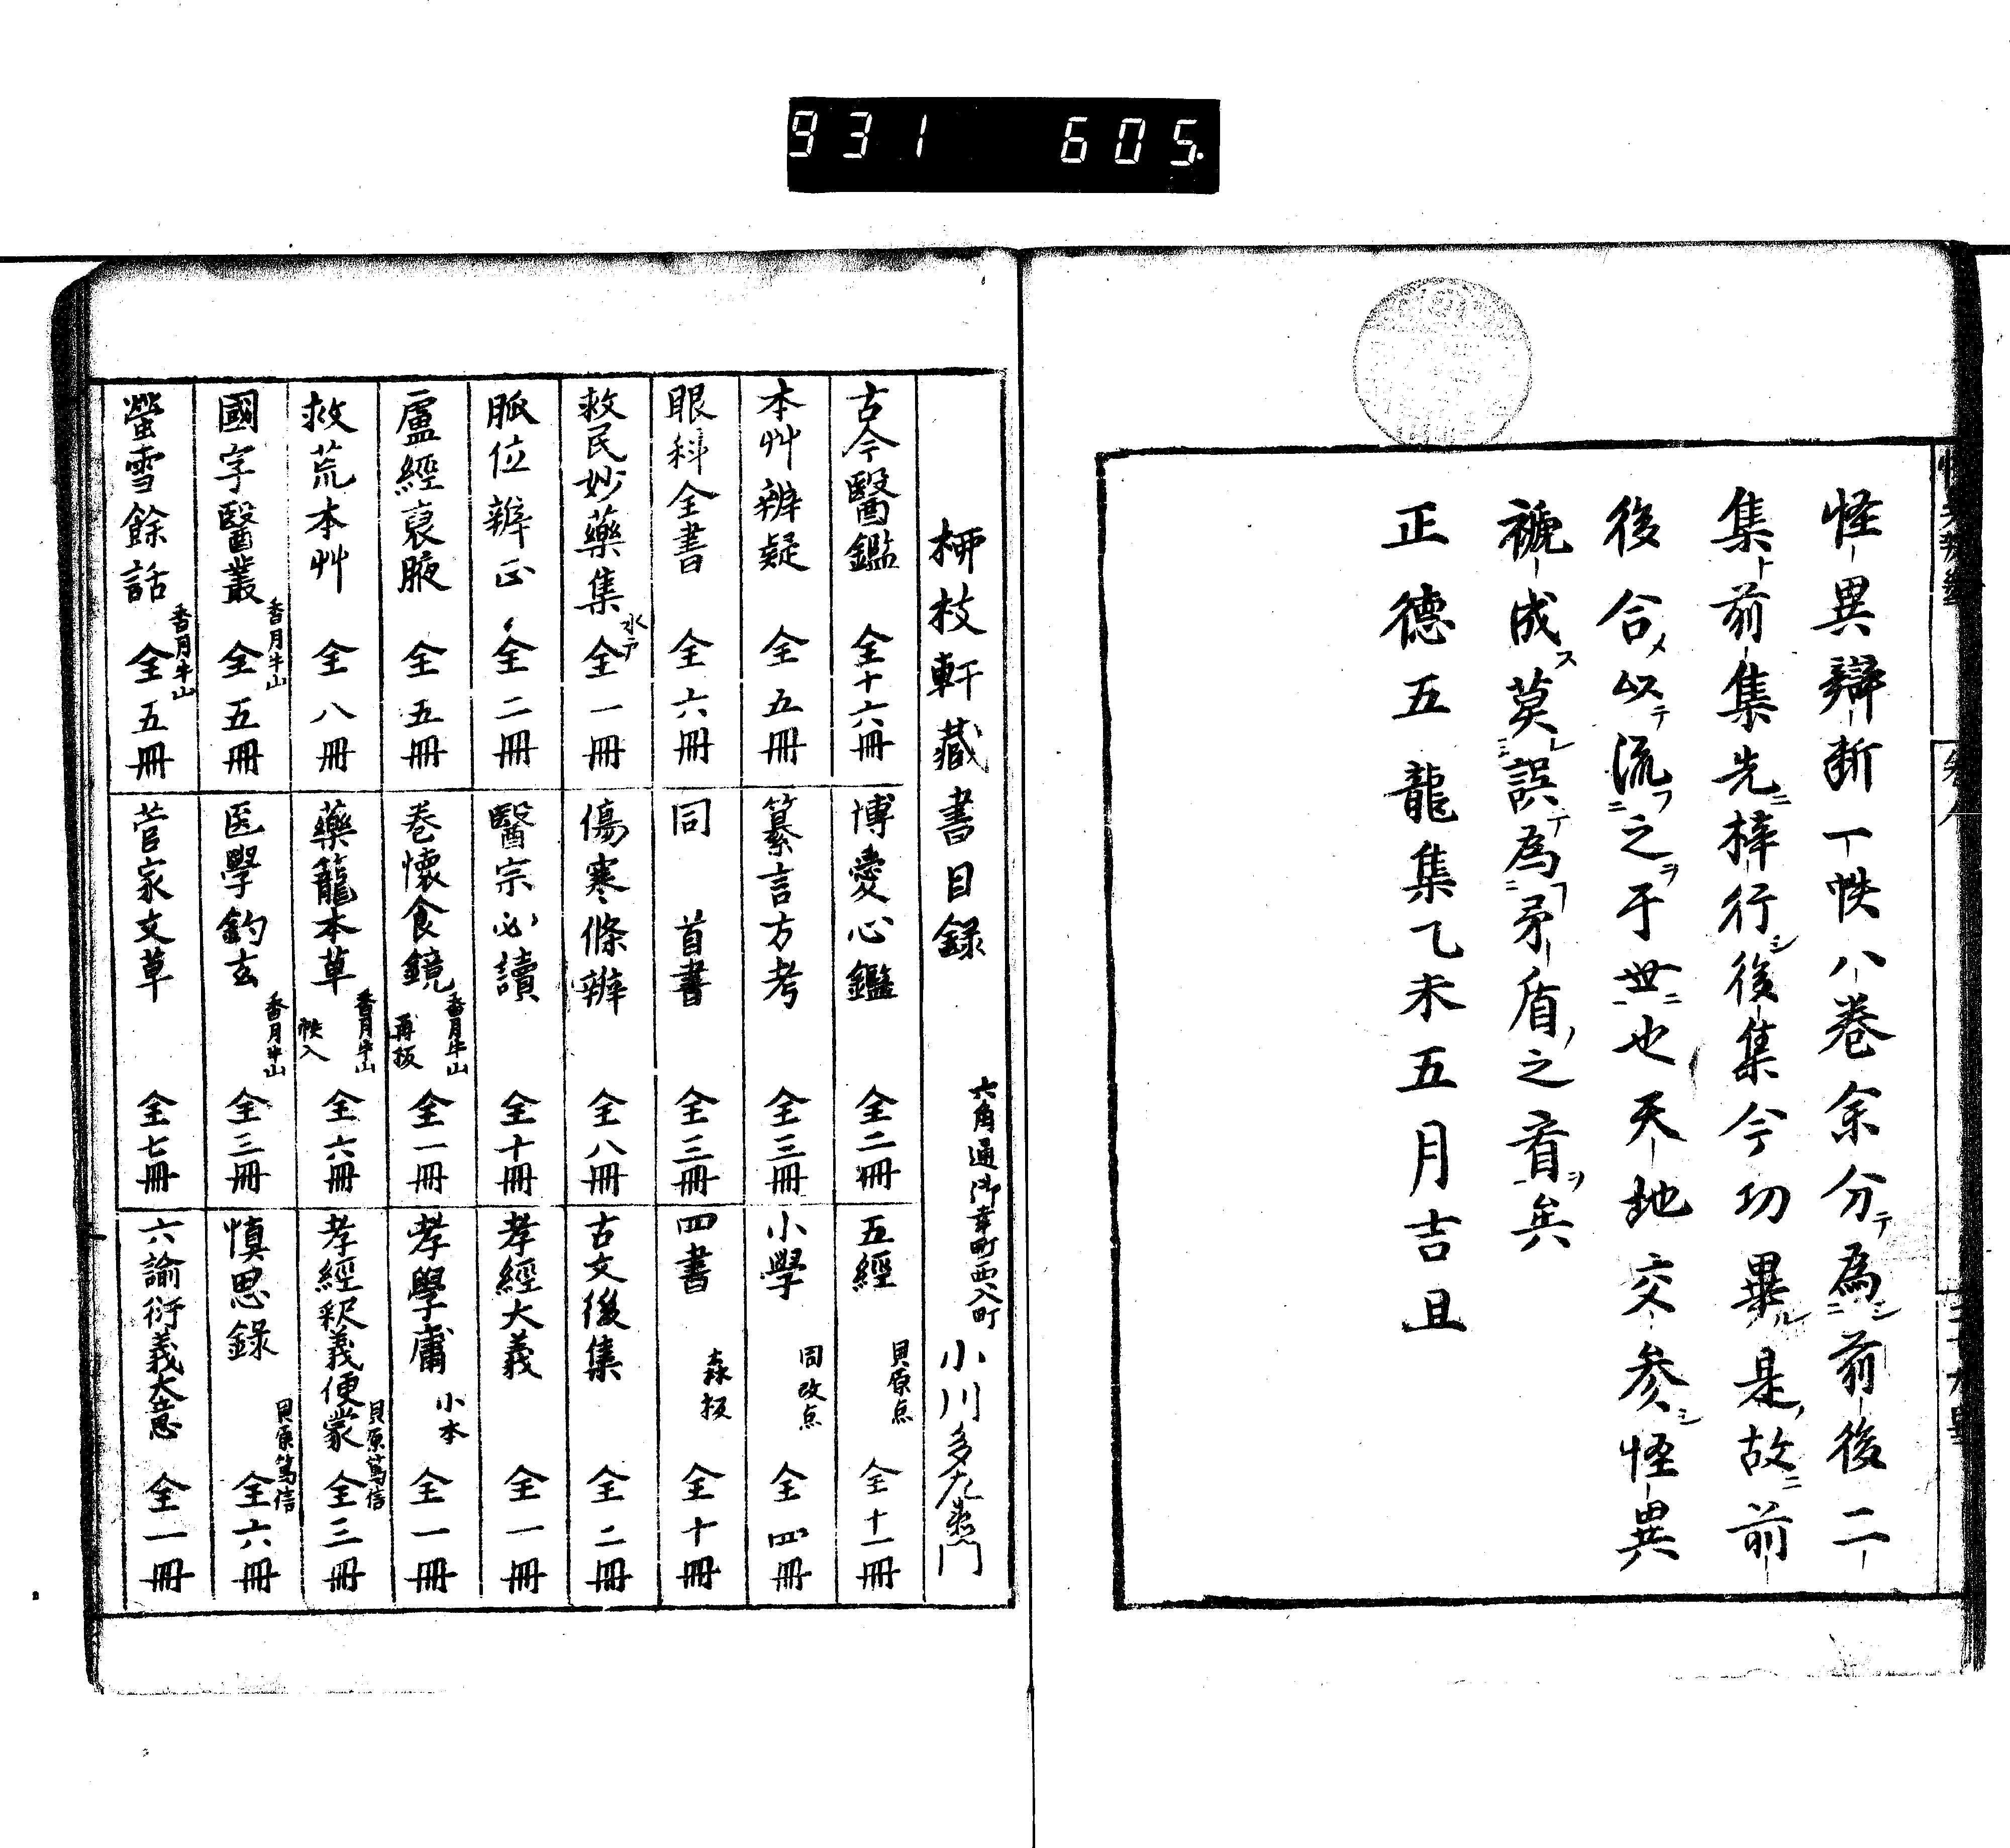 931 605
怪異辯断一帙八巻余分テ為シ二前後二
集ト前集先ニ梓行シ後集今功畢ル是ノ故ニ前
後合メ以テ流フ二之ヲ于世ニ一也天地交参シ怪異
褫成ス莫レ三誤テ為フ二矛盾ノ之看ヲ一矣
正徳五龍集乙未五月吉旦
柳枝軒藏書目録 六角通御幸町西入町 小川多左衛門
古今醫鑑 全十六冊
本艸辨疑 全五冊
眼科全書 全六冊
救民妙藥集 全一冊
脈位辨正 全二冊
盧經裒腋 全五冊
救荒本艸 全八冊
國字醫叢 香月牛山 全五冊
螢雪餘話 香月牛山 全五冊
博愛心鑑 全二冊
纂言方考 全三冊
同 首書 全三冊
傷寒條辨 全八冊
醫宗必讀 全十冊
巻懐食鏡 香月牛山 再板 全一冊
藥籠本草 香月牛山 帙入 全六冊
医學鈎玄 香月牛山 全三冊
菅家文草 全七冊
五經 貝原点 全十一冊
小學 同改点 全四冊
四書 森板 全十冊
古文後集 全二冊
孝經大義 全一冊
孝學庸 小本 全一冊
孝經釈義便蒙 貝原篤信 全三冊
慎思錄 貝原篤信 全六冊
六諭衍義大意 全一冊